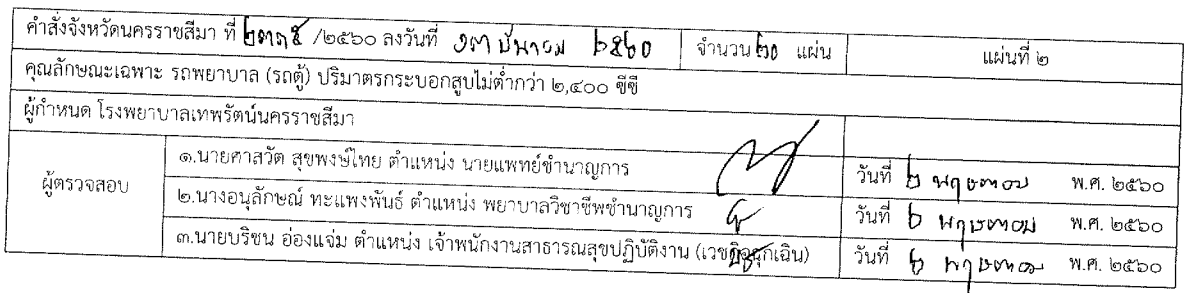 คำสั่งจังหวัดนครราชสีมา ที่ /๒๕๖๐ ลงวันที่ ๑๓ มีนาคม ๒๕๖๐ จำนวน ๒๐ แผ่น แผ่นที่ ๒
คุณลักษณะเฉพาะ รถพยาบาล (รถตู้) ปริมาตรกระบอกสูบไม่ต่ำกว่า ๒,๔๐๐ ซีซี
ผู้กำหนด โรงพยาบาลเทพรัตน์นครราชสีมา
ผู้ตรวจสอบ
๑.นายศาสวัต สุขพงษ์ไทย ตำแหน่ง นายแพทย์ชำนาญการ วันที่ ๖ พฤษภาคม พ.ศ. ๒๕๖๐
๒.นางอนุลักษณ์ ทะแพงพันธ์ ตำแหน่ง พยาบาลวิชาชีพชำนาญการ วันที่ ๖ พฤษภาคม พ.ศ. ๒๕๖๐
๓.นายบริชน อ่องแจ่ม ตำแหน่ง เจ้าพนักงานสาธารณสุขปฏิบัติงาน (เวชกิจฉุกเฉิน) วันที่ ๖ พฤษภาคม พ.ศ. ๒๕๖๐